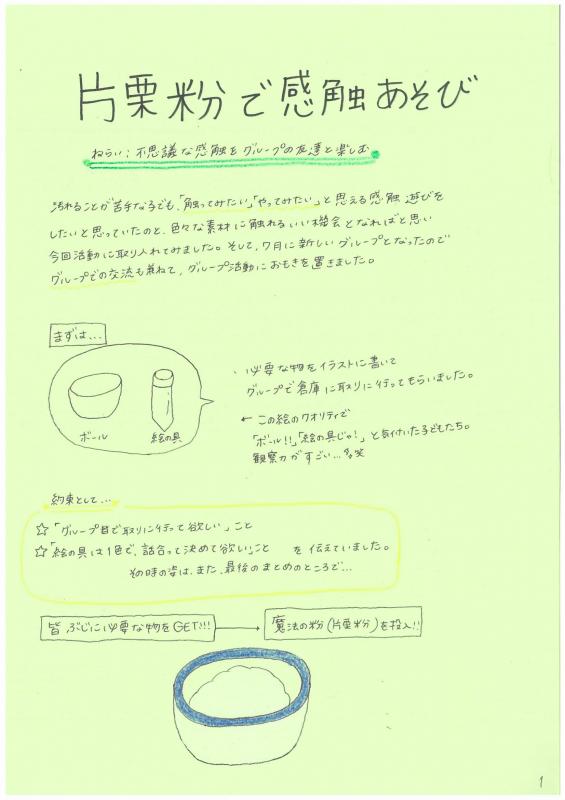 片栗粉で感触あそび
ねらい:不思議な感触をグループの友達と楽しむ
汚れることが苦手な子でも、「触ってみたい」「やってみたい」と思える感触遊びを
したいと思っていたのと、色々な素材に触れるいい機会となればと思い
今回活動に取り入れてみました。そして、7月に新しいグループとなったので
グループでの交流も兼ねて、グループ活動におもきを置きました。
まずは...
ボール
絵の具
必要な物をイラストに書いて
グループで倉庫に取りに行ってもらいました。
← この絵のクオリティで
「ボール!!」「絵の具じゃ!」と気付いた子どもたち。
観察力がすごい...笑
約束として...
☆「グループ皆で取りに行って欲しい」こと
☆「絵の具は1色で、話合って決めて欲しい」こと を伝えていました。
その時の姿は、また、最後のまとめのところで...
皆ぶじに必要な物をGET!!! → 魔法の粉(片栗粉)を投入!!
1